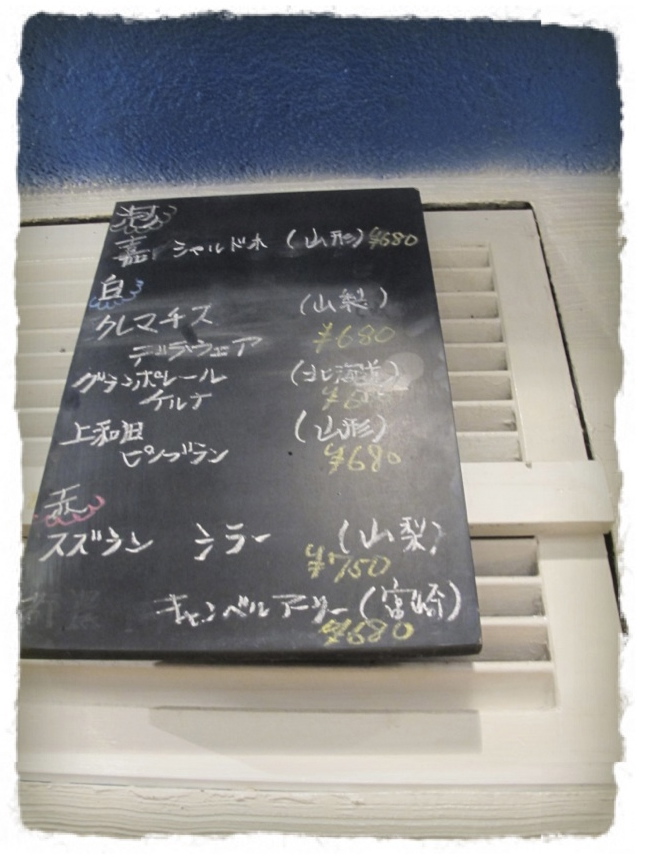 泡
嘉 シャルドネ (山形) ¥680
白
クレマチス (山梨)
デラウェア ¥680
グランポレール (北海道)
ケルナ
上和田 (山形)
ピノブラン ¥680
赤
スズラン シラー (山梨)
¥750
キャンベルアーリー (宮崎)
¥680